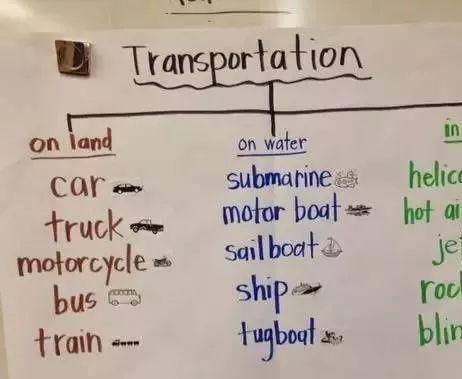 Transportation
on land
car
truck
motorcycle
bus
train
on water
submarine
motor boat
sailboat
ship
tugboat
in
helic
hot ai
je
roc
bli